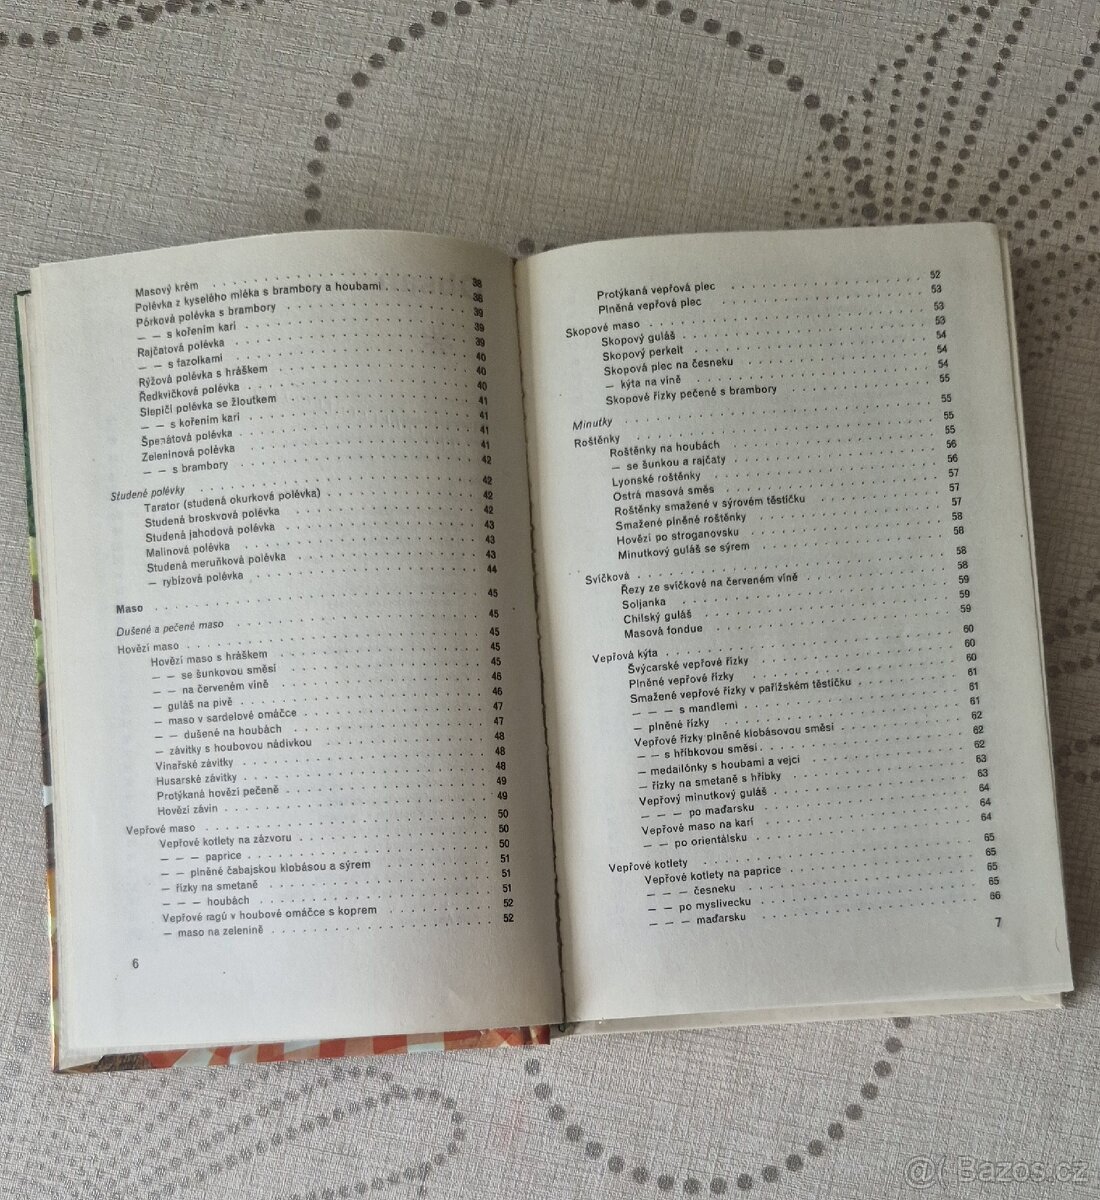 Masový krém . . . 38
Polévka z kyselého mléka s brambory a houbami . . . 38
Pórková polévka s brambory . . . 39
— — s kořením kari . . . 39
Rajčatová polévka . . . 39
— — s fazolkami . . . 40
Rýžová polévka s hráškem . . . 40
Ředkvičková polévka . . . 40
Slepičí polévka se žloutkem . . . 41
— — s kořením kari . . . 41
Špenátová polévka . . . 41
Zeleninová polévka . . . 41
— — s brambory . . . 42
Studené polévky . . . 42
Tarator (studená okurková polévka) . . . 42
Studená broskvová polévka . . . 42
Studená jahodová polévka . . . 43
Malinová polévka . . . 43
Studená meruňková polévka . . . 43
— rybízová polévka . . . 44
Maso . . . 45
Dušené a pečené maso . . . 45
Hovězí maso . . . 45
Hovězí maso s hráškem . . . 45
— — se šunkovou směsí . . . 45
— — na červeném víně . . . 46
— guláš na pivě . . . 46
— maso v sardelové omáčce . . . 47
— — dušené na houbách . . . 47
— závitky s houbovou nádivkou . . . 48
Vinařské závitky . . . 48
Husarské závitky . . . 48
Protýkaná hovězí pečeně . . . 49
Hovězí závin . . . 49
Vepřové maso . . . 50
Vepřové kotlety na zázvoru . . . 50
— — — paprice . . . 50
— — plněné čabajskou klobásou a sýrem . . . 51
— řízky na smetaně . . . 51
— — — houbách . . . 51
Vepřové ragú v houbové omáčce s koprem . . . 52
— maso na zelenině . . . 52
6
Protýkaná vepřová plec . . . 52
Plněná vepřová plec . . . 53
Skopové maso . . . 53
Skopový guláš . . . 53
Skopový perkelt . . . 54
Skopová plec na česneku . . . 54
— kýta na víně . . . 54
Skopové řízky pečené s brambory . . . 55
Minutky . . . 55
Roštěnky . . . 55
Roštěnky na houbách . . . 55
— se šunkou a rajčaty . . . 56
Lyonské roštěnky . . . 56
Ostrá masová směs . . . 57
Roštěnky smažené v sýrovém těstíčku . . . 57
Smažené plněné roštěnky . . . 57
Hovězí po stroganovsku . . . 58
Minutkový guláš se sýrem . . . 58
Svíčková . . . 58
Řezy ze svíčkové na červeném víně . . . 58
Soljanka . . . 59
Chilský guláš . . . 59
Masová fondue . . . 59
Vepřová kýta . . . 60
Švýcarské vepřové řízky . . . 60
Plněné vepřové řízky . . . 60
Smažené vepřové řízky v pařížském těstíčku . . . 61
— — — s mandlemi . . . 61
— plněné řízky . . . 61
Vepřové řízky plněné klobásovou směsí . . . 62
— — s hříbkovou směsí . . . 62
— medailónky s houbami a vejci . . . 62
— řízky na smetaně s hříbky . . . 63
Vepřový minutkový guláš . . . 63
— — — po maďarsku . . . 64
Vepřové maso na kari . . . 64
— — po orientálsku . . . 64
Vepřové kotlety . . . 65
Vepřové kotlety na paprice . . . 65
— — — česneku . . . 65
— — po myslivecku . . . 65
— — — maďarsku . . . 66
7
Bazos.cz